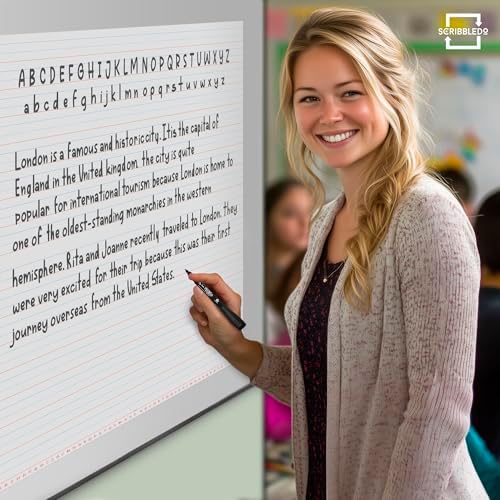 ABCDEFGHIJKLMNOPQRSTUVWXYZ
abcdefghijklmnopqrstuvwxyz
London is a famous and historic city. It is the capital of
England in the United kingdom. the city is quite
popular for international tourism because London is home to
one of the oldest-standing monarchies in the western
hemisphere. Rita and Joanne recently traveled to London. They
were very excited for their trip because this was their first
journey overseas from the United States.
SCRIBBLEDO